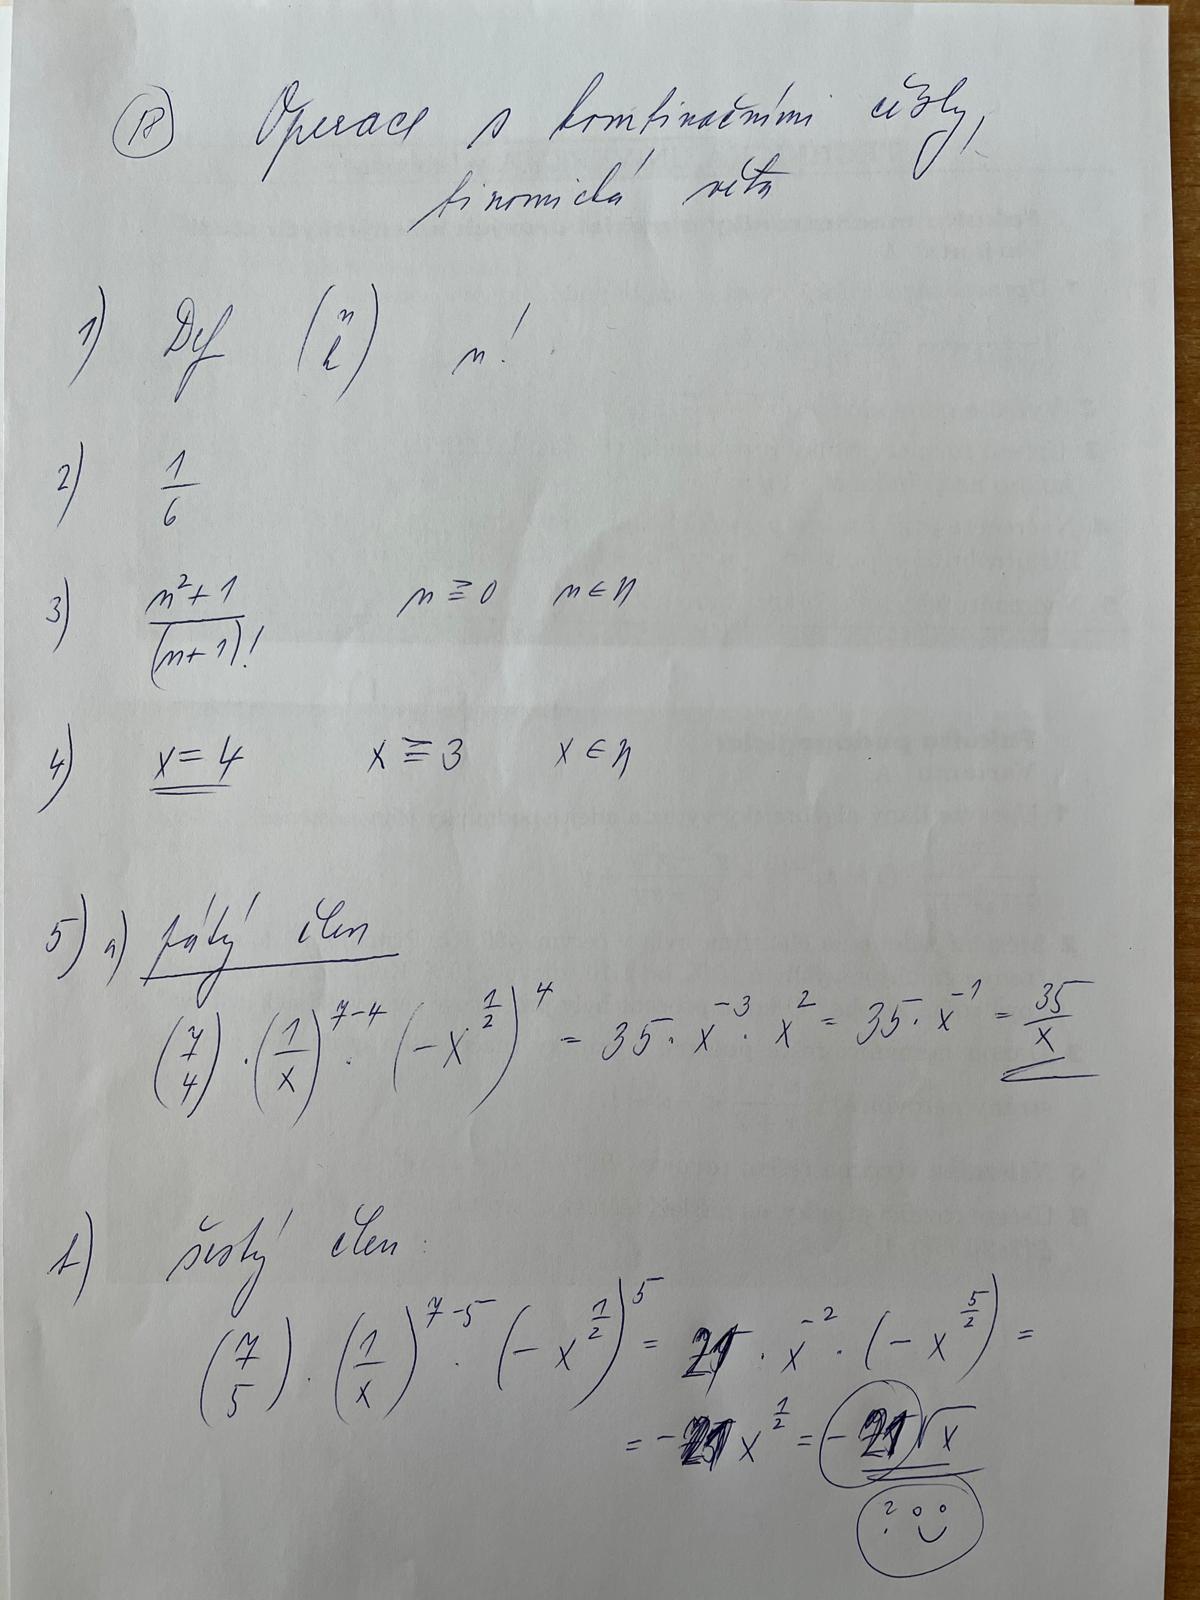 18 Operace s kombinačními čísly,
binomická věta
1) Def (n k) n!
2) 1/6
3) (n²+1)/(n+1)! n ≥ 0 n ∈ N
4) x = 4 x ≥ 3 x ∈ N
5) a) pátý člen
(7 4) · (1/x)^(7-4) · (-x^(1/2))^4 = 35 · x^(-3) · x^2 = 35 · x^(-1) = 35/x
b) šestý člen:
(7 5) · (1/x)^(7-5) · (-x^(1/2))^5 = 21 · x^(-2) · (-x^(5/2)) =
= -21 x^(1/2) = -21 √x
?